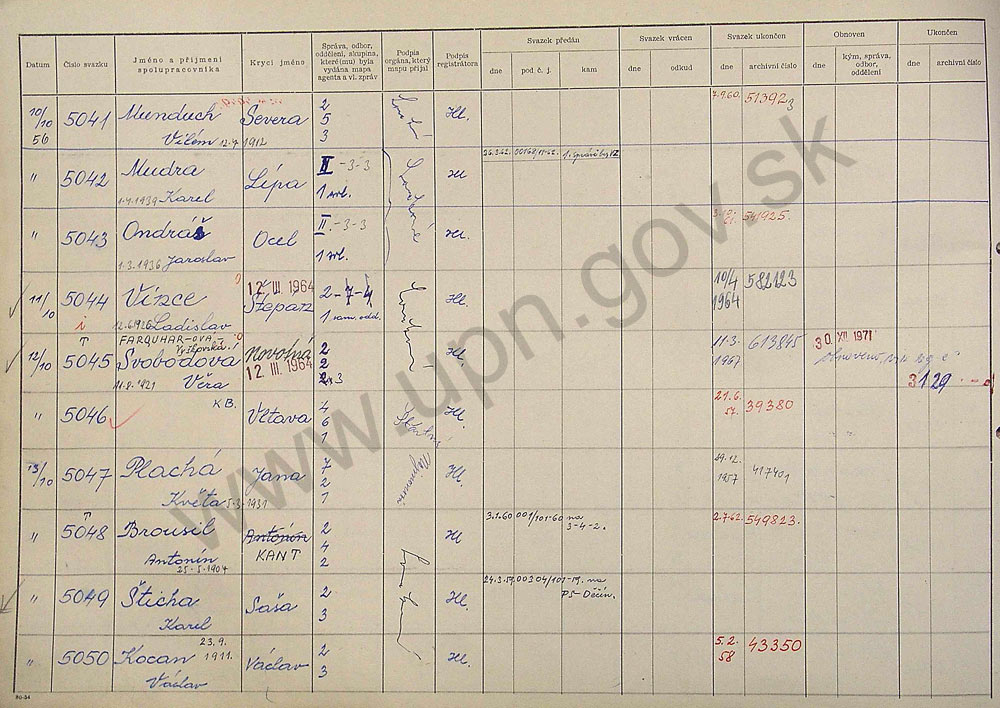 Datum Číslo svazku Jméno a příjmení spolupracovníka Krycí jméno Správa, odbor, oddělení, skupina, které(mu) byla vydána mapa agenta a vl. zpráv Podpis orgána, který mapu přijal Podpis registrátora Svazek předán Svazek vrácen Svazek ukončen Obnoven Ukončen
dne pod č. j. kam dne odkud dne archivní číslo dne kým, správa, odbor, oddělení dne archivní číslo
10/10 56 5041 Munduch Severa 2 5 3 Hl. 7.9.60. 51392
Vilém 12.4 1912
26.3.62. 1. správě
" 5042 Mudra Lípa II -3-3 Hl
1.4.1939 Karel 1
" 5043 Ondráš Ocel II.-3-3 Hl. 541925.
1.3.1936 Jaroslav 1
11/10 5044 Vinzce 12. III 1964 Štěpán 2-7-4 Hl. 10/4 1964 582123
12.6.1926 Ladislav 1 sam. odd.
FARQUHAR-OVÁ
12/10 5045 Svobodová Novotná 2 2 2 3 Hl 11.3. 1967 613845 30 XII 1971
11.8.1921 Věra 12. III. 1964
3129
" 5046 KB. Vltava 4 6 1 Hl. 21.6. 57. 39380
13/10 5047 Plachá Jana 7 2 1 Hl 29.12. 1957 417401
Květa 5.3.1931
" 5048 Brousil Antonín 2 4 2 Hl 3.1.60 001/101-60 na 3-4-2. 2.7.62. 549823.
Antonín KANT
25.5.1904
" 5049 Šticha Saša 2 3 Hl. 24.3.59. 00304/101-59. na PS-Děčín.
Karel
" 5050 Kocan 23.9. 1911. Václav 2 3 Hl. 5.2. 58 43350
Václav
80-54
www.upn.gov.sk